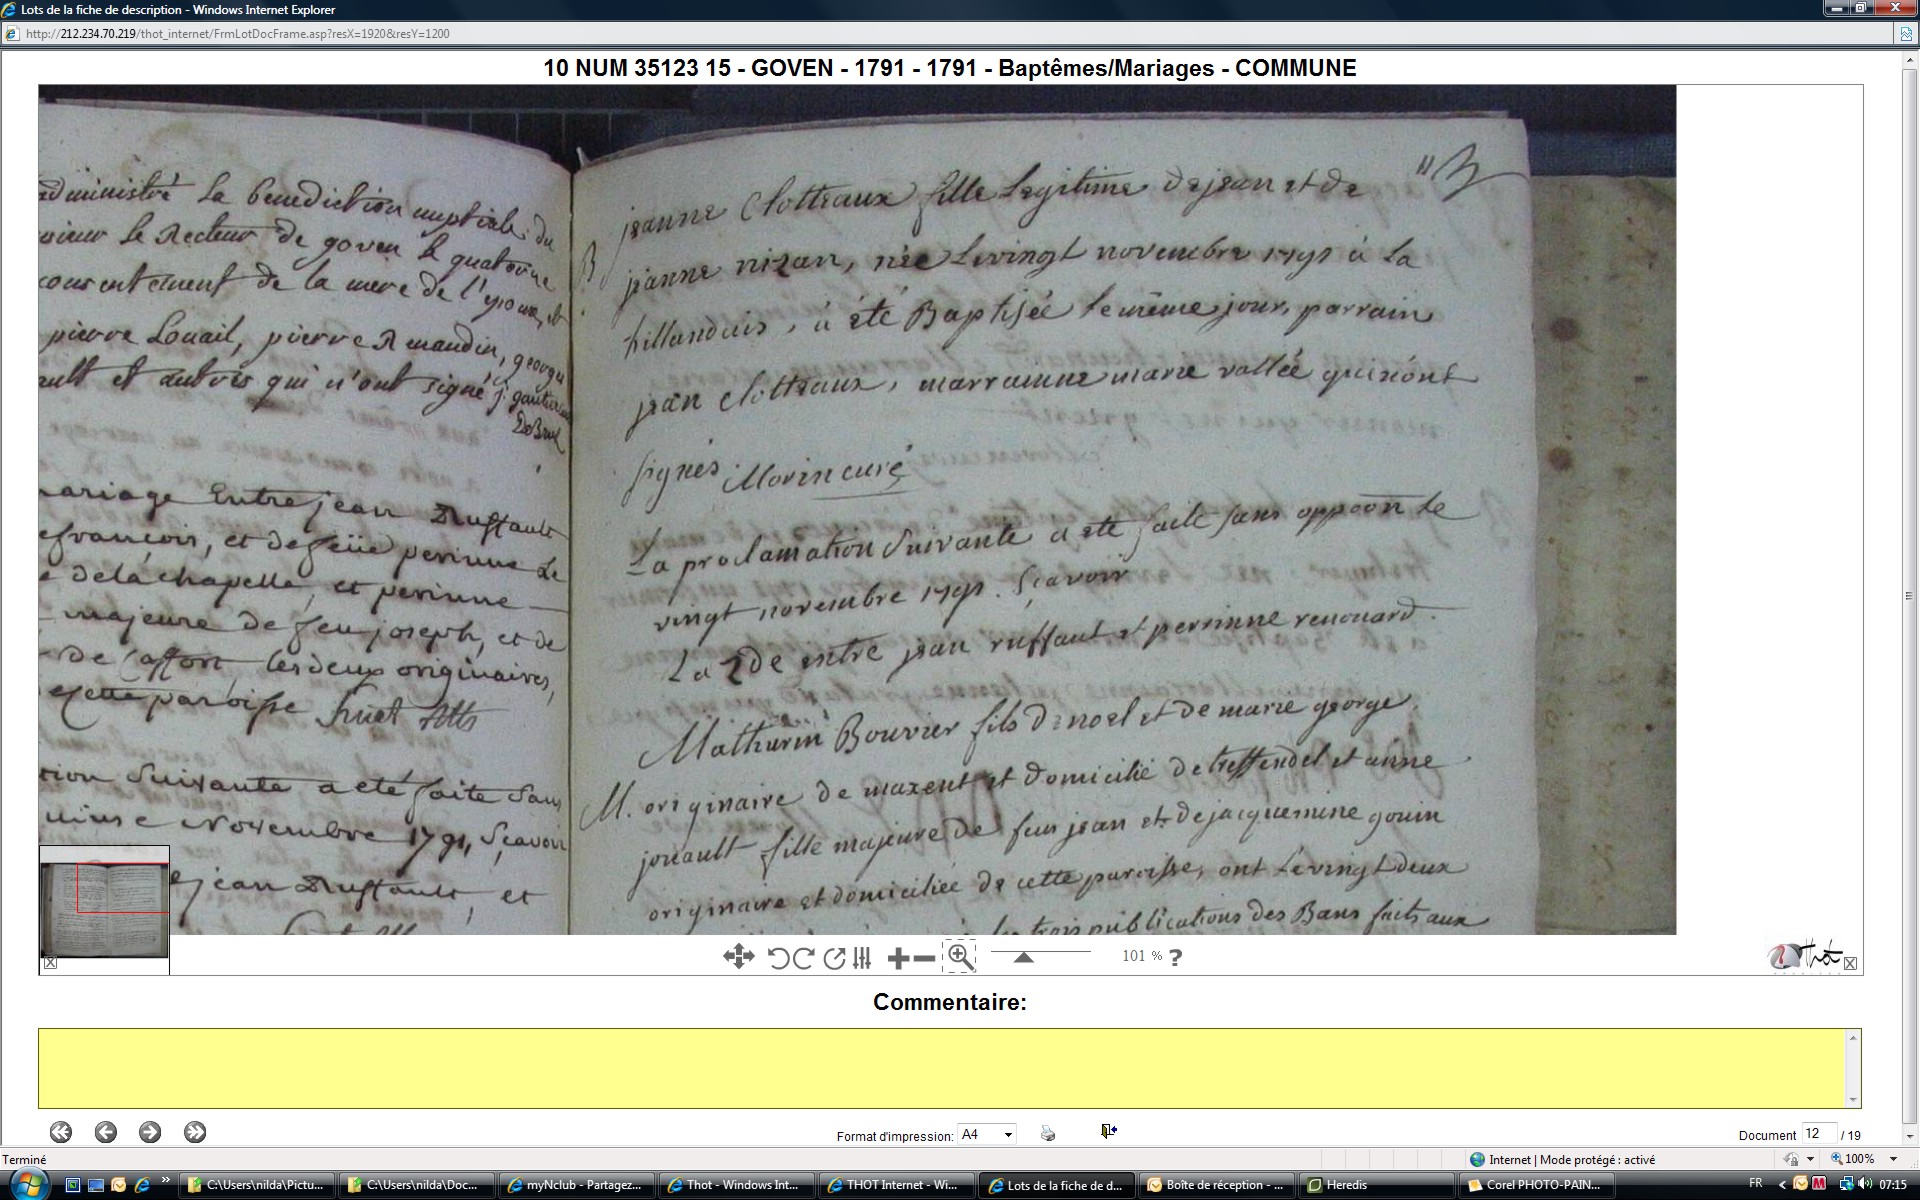 Lots de la fiche de description - Windows Internet Explorer
http://212.234.70.219/thot_internet/FrmLotDocFrame.asp?resX=1920&resY=1200
10 NUM 35123 15 - GOVEN - 1791 - 1791 - Baptêmes/Mariages - COMMUNE
administré la benediction nuptiale du
le Recteur de goven le quatorze
consentement de la mere de l'epouse, et
pierre Louail, pierre Amaudin, george
et autres qui n'ont signé j. gautier
DeBruc
mariage Entre jean Ruffault
françois, et de feüe perinne Le
de la chapelle, et perinne
majeure de feu joseph, et de
de les deux originaires,
cette paroisse huet
Suivante a eté faite Sans
Novembre 1791, Sçavoir
jean Ruffault, et
B
jeanne Clotteaux fille Legitime de jean et de
jeanne nizan, née Le vingt novembre 1791 à La
hillandais, à été Baptisée le même jour, parrain
jean Clotteaux, marrainne marie vallée qui n'ont
signés Morin curé
La proclamation Suivante a eté faite sans oppoon Le
vingt novembre 1791. Sçavoir
La 2de entre jean ruffaut et perrinne renouard.
Mathurin Bouvier fils De noel et de marie george
M. originaire de maxent et domicilié de treffendel et anne
jouault fille majeure de feus jean et de jacquemine gouin
originaire et domiciliée de cette paroisse, ont Le vingt deux
les trois publications des Bans faits aux
101 % ?
Thot
Commentaire:
Format d'impression: A4
Document 12 / 19
Terminé
Internet | Mode protégé : activé
100%
C:\Users\nilda\Pictu...
C:\Users\nilda\Doc...
myNclub - Partagez...
Thot - Windows Int...
THOT Internet - Wi...
Lots de la fiche de d...
Boîte de réception - ...
Heredis
Corel PHOTO-PAIN...
FR
07:15